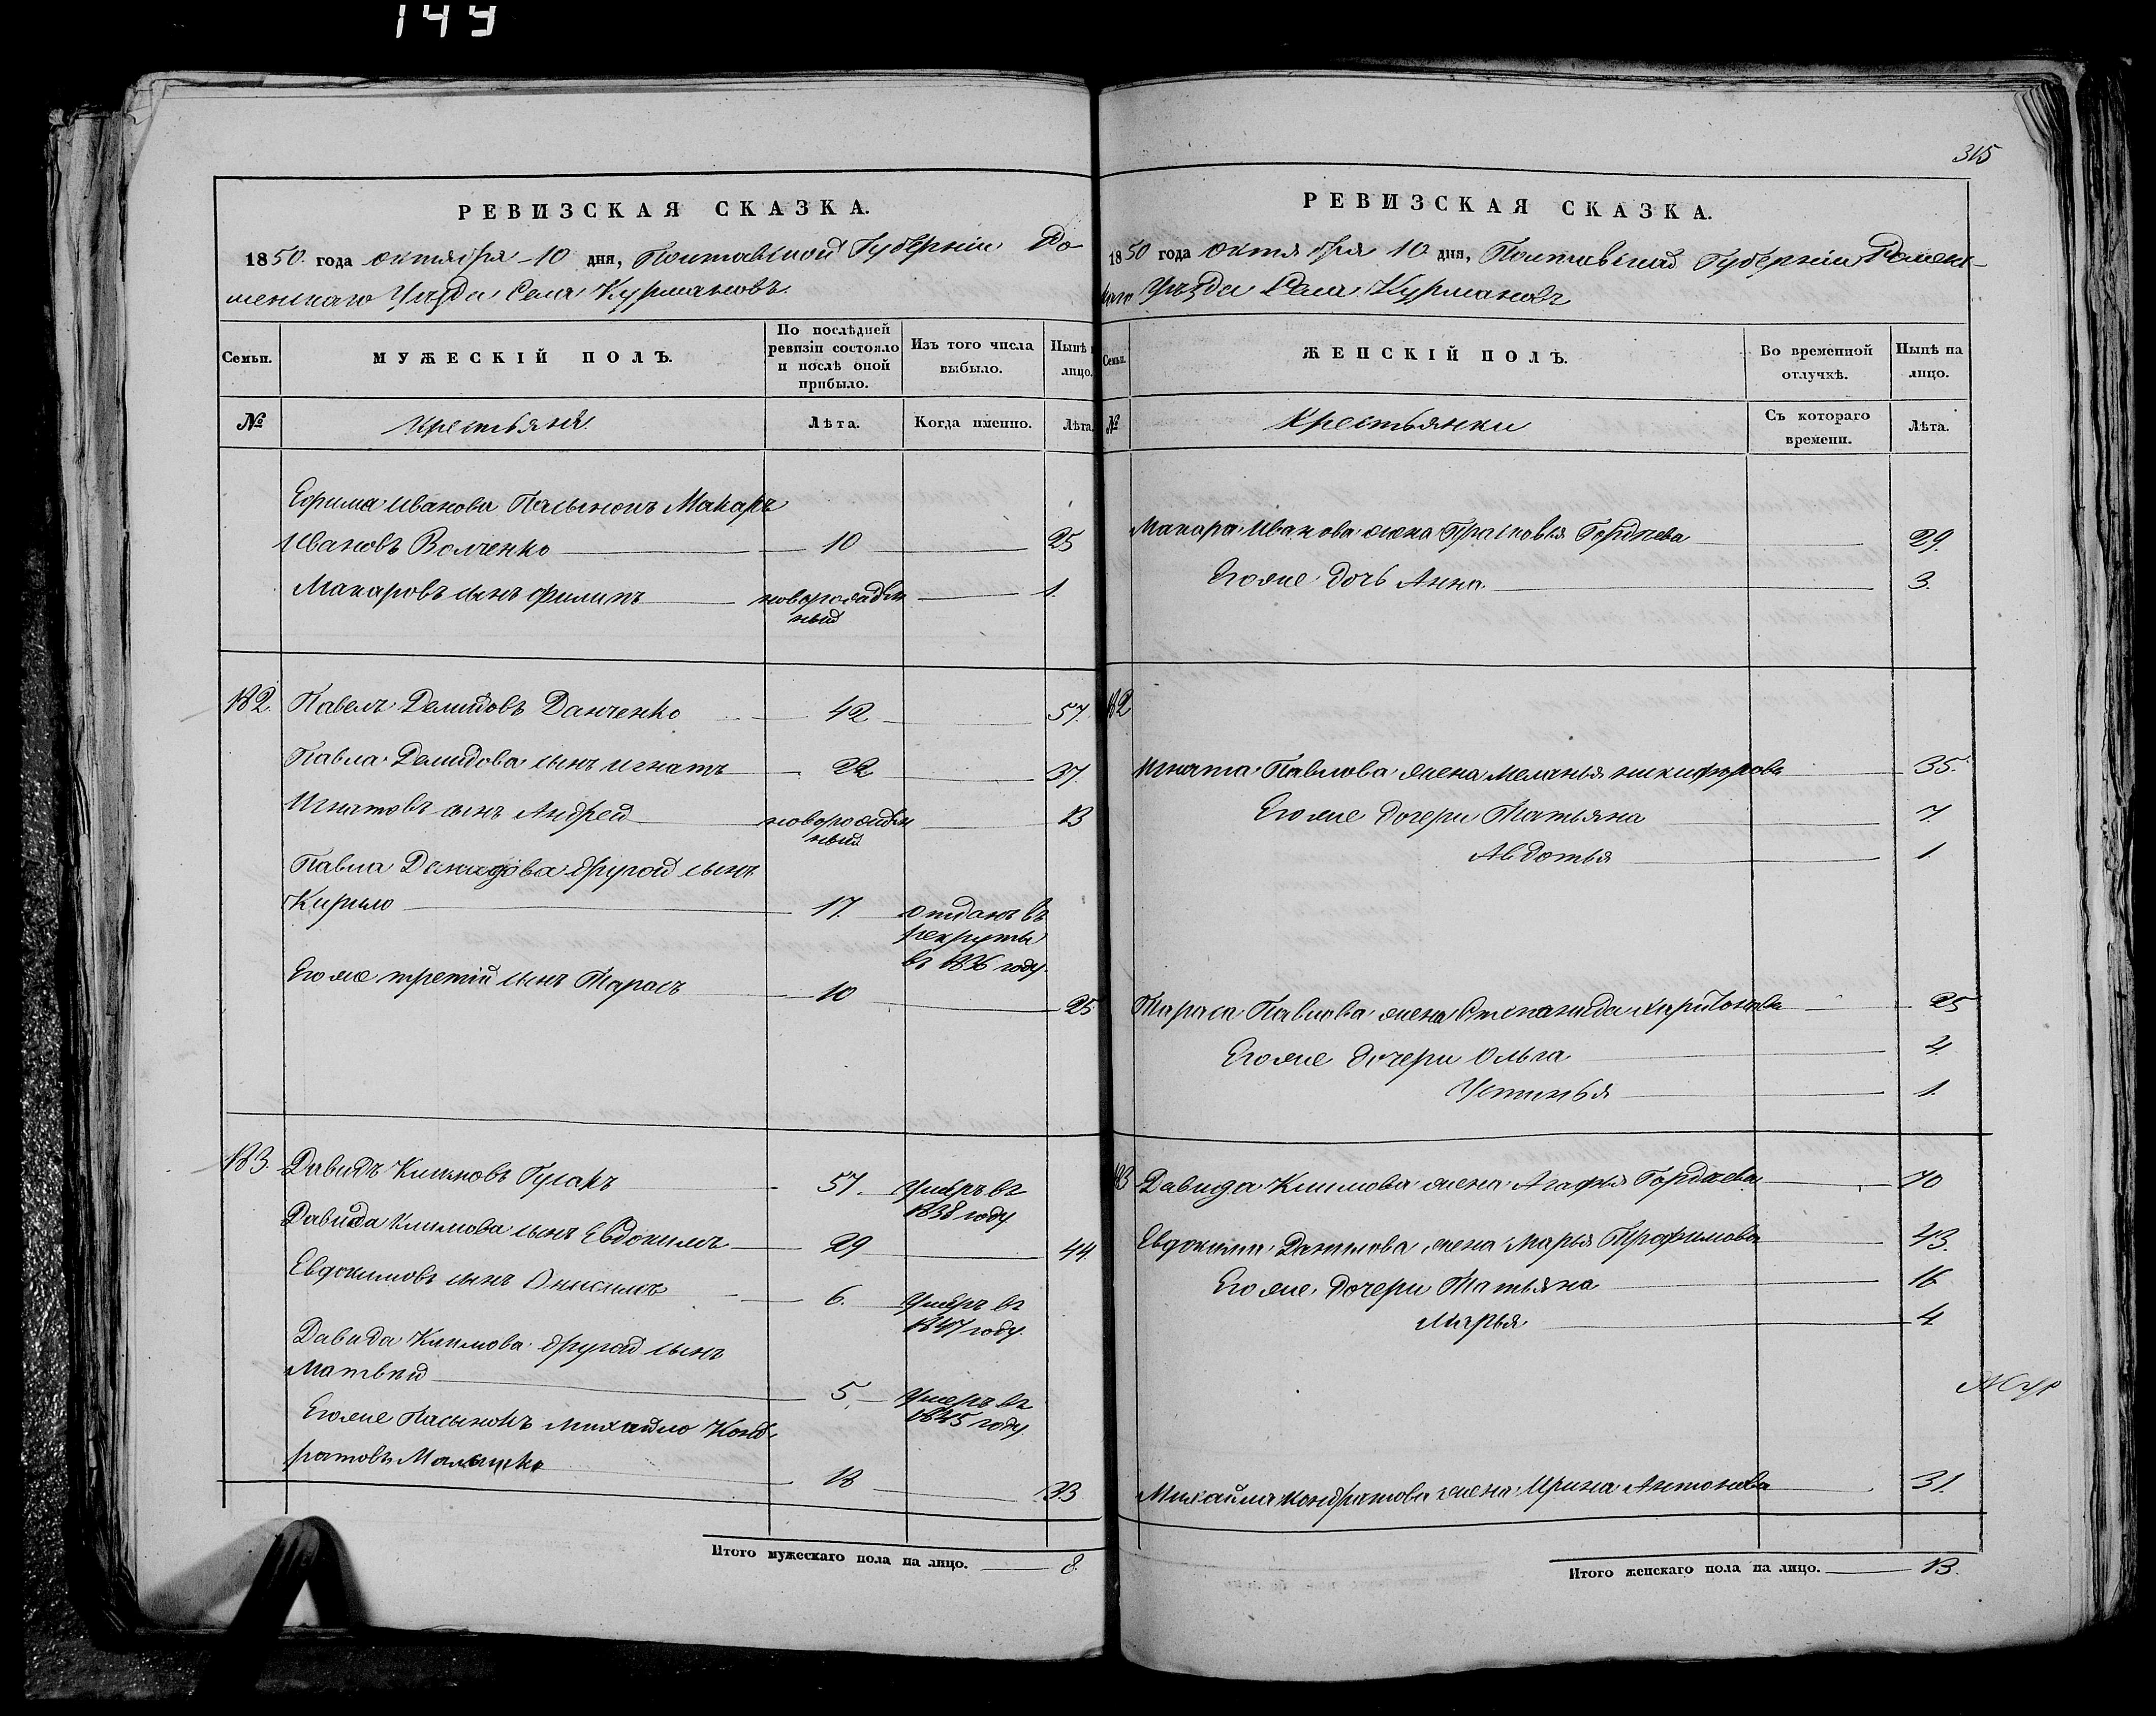 149
РЕВИЗСКАЯ СКАЗКА.
1850. года октября 10 дня, Полтавской Губерніи Ро
менскаго Уѣзда Села Курмановъ
Семьи.
МУЖЕСКІЙ ПОЛЪ.
По послѣдней
ревизіи состояло
и послѣ оной
прибыло.
Изъ того числа
выбыло.
Нынѣ
лицо.
№
Крестьяня
Лѣта.
Когда именно.
Лѣта
Ефима Иванова Пасынокъ Макаръ
Ивановъ Волченко 10 25
Макаровъ сынъ Филипъ новорожден
ный 1.
182. Павелъ Демидовъ Данченко 42 57.
Павла Демидова сынъ Игнатъ 22 37.
Игнатовъ сынъ Андрей новорожден
ный 13
Павла Демидова другой сынъ
Кирило 17. отданъ въ
рекруты
въ 1836 году.
Егоже третій сынъ Тарасъ 10 25
183. Давидъ Климовъ Гусакъ 57. Умеръ въ
1838 году
Давида Климова сынъ Евдокимъ 29 44.
Евдокимовъ сынъ Онисимъ 6. Умеръ въ
1847 году.
Давида Климова другой сынъ
Матвѣй 5. Умеръ въ
1845 году.
Егоже Пасынокъ Михайло Конд
ратовъ Малышко 18 33
Итого мужескаго пола на лицо. 8.
315
РЕВИЗСКАЯ СКАЗКА.
1850 года октября 10 дня, Полтавской Губерніи Ромен-
скаго Уѣзда Села Курмановъ
Семьи.
ЖЕНСКІЙ ПОЛЪ.
Во временной
отлучкѣ.
Нынѣ на
лицо.
№
Крестьянки
Съ котораго
времени.
Лѣта.
Макара Иванова жена Прасковья Гордѣева 29.
Егоже дочь Анна 3.
182
Игната Павлова жена Меланья Никифорова 35.
Егоже дочери Татьяна 7.
Авдотья 1.
Тараса Павлова жена Степанида Харитонова 25
Егоже дочери Ольга 4.
Устинья 1.
183 Давида Климова жена Агафья Гордѣева 70
Евдокима Данилова жена Марья Трофимова 43.
Егоже дочери Татьяна 16
Марья 4.
Михайла Кондратова жена Ирина Антонова 31.
Итого женскаго пола на лицо. 13.